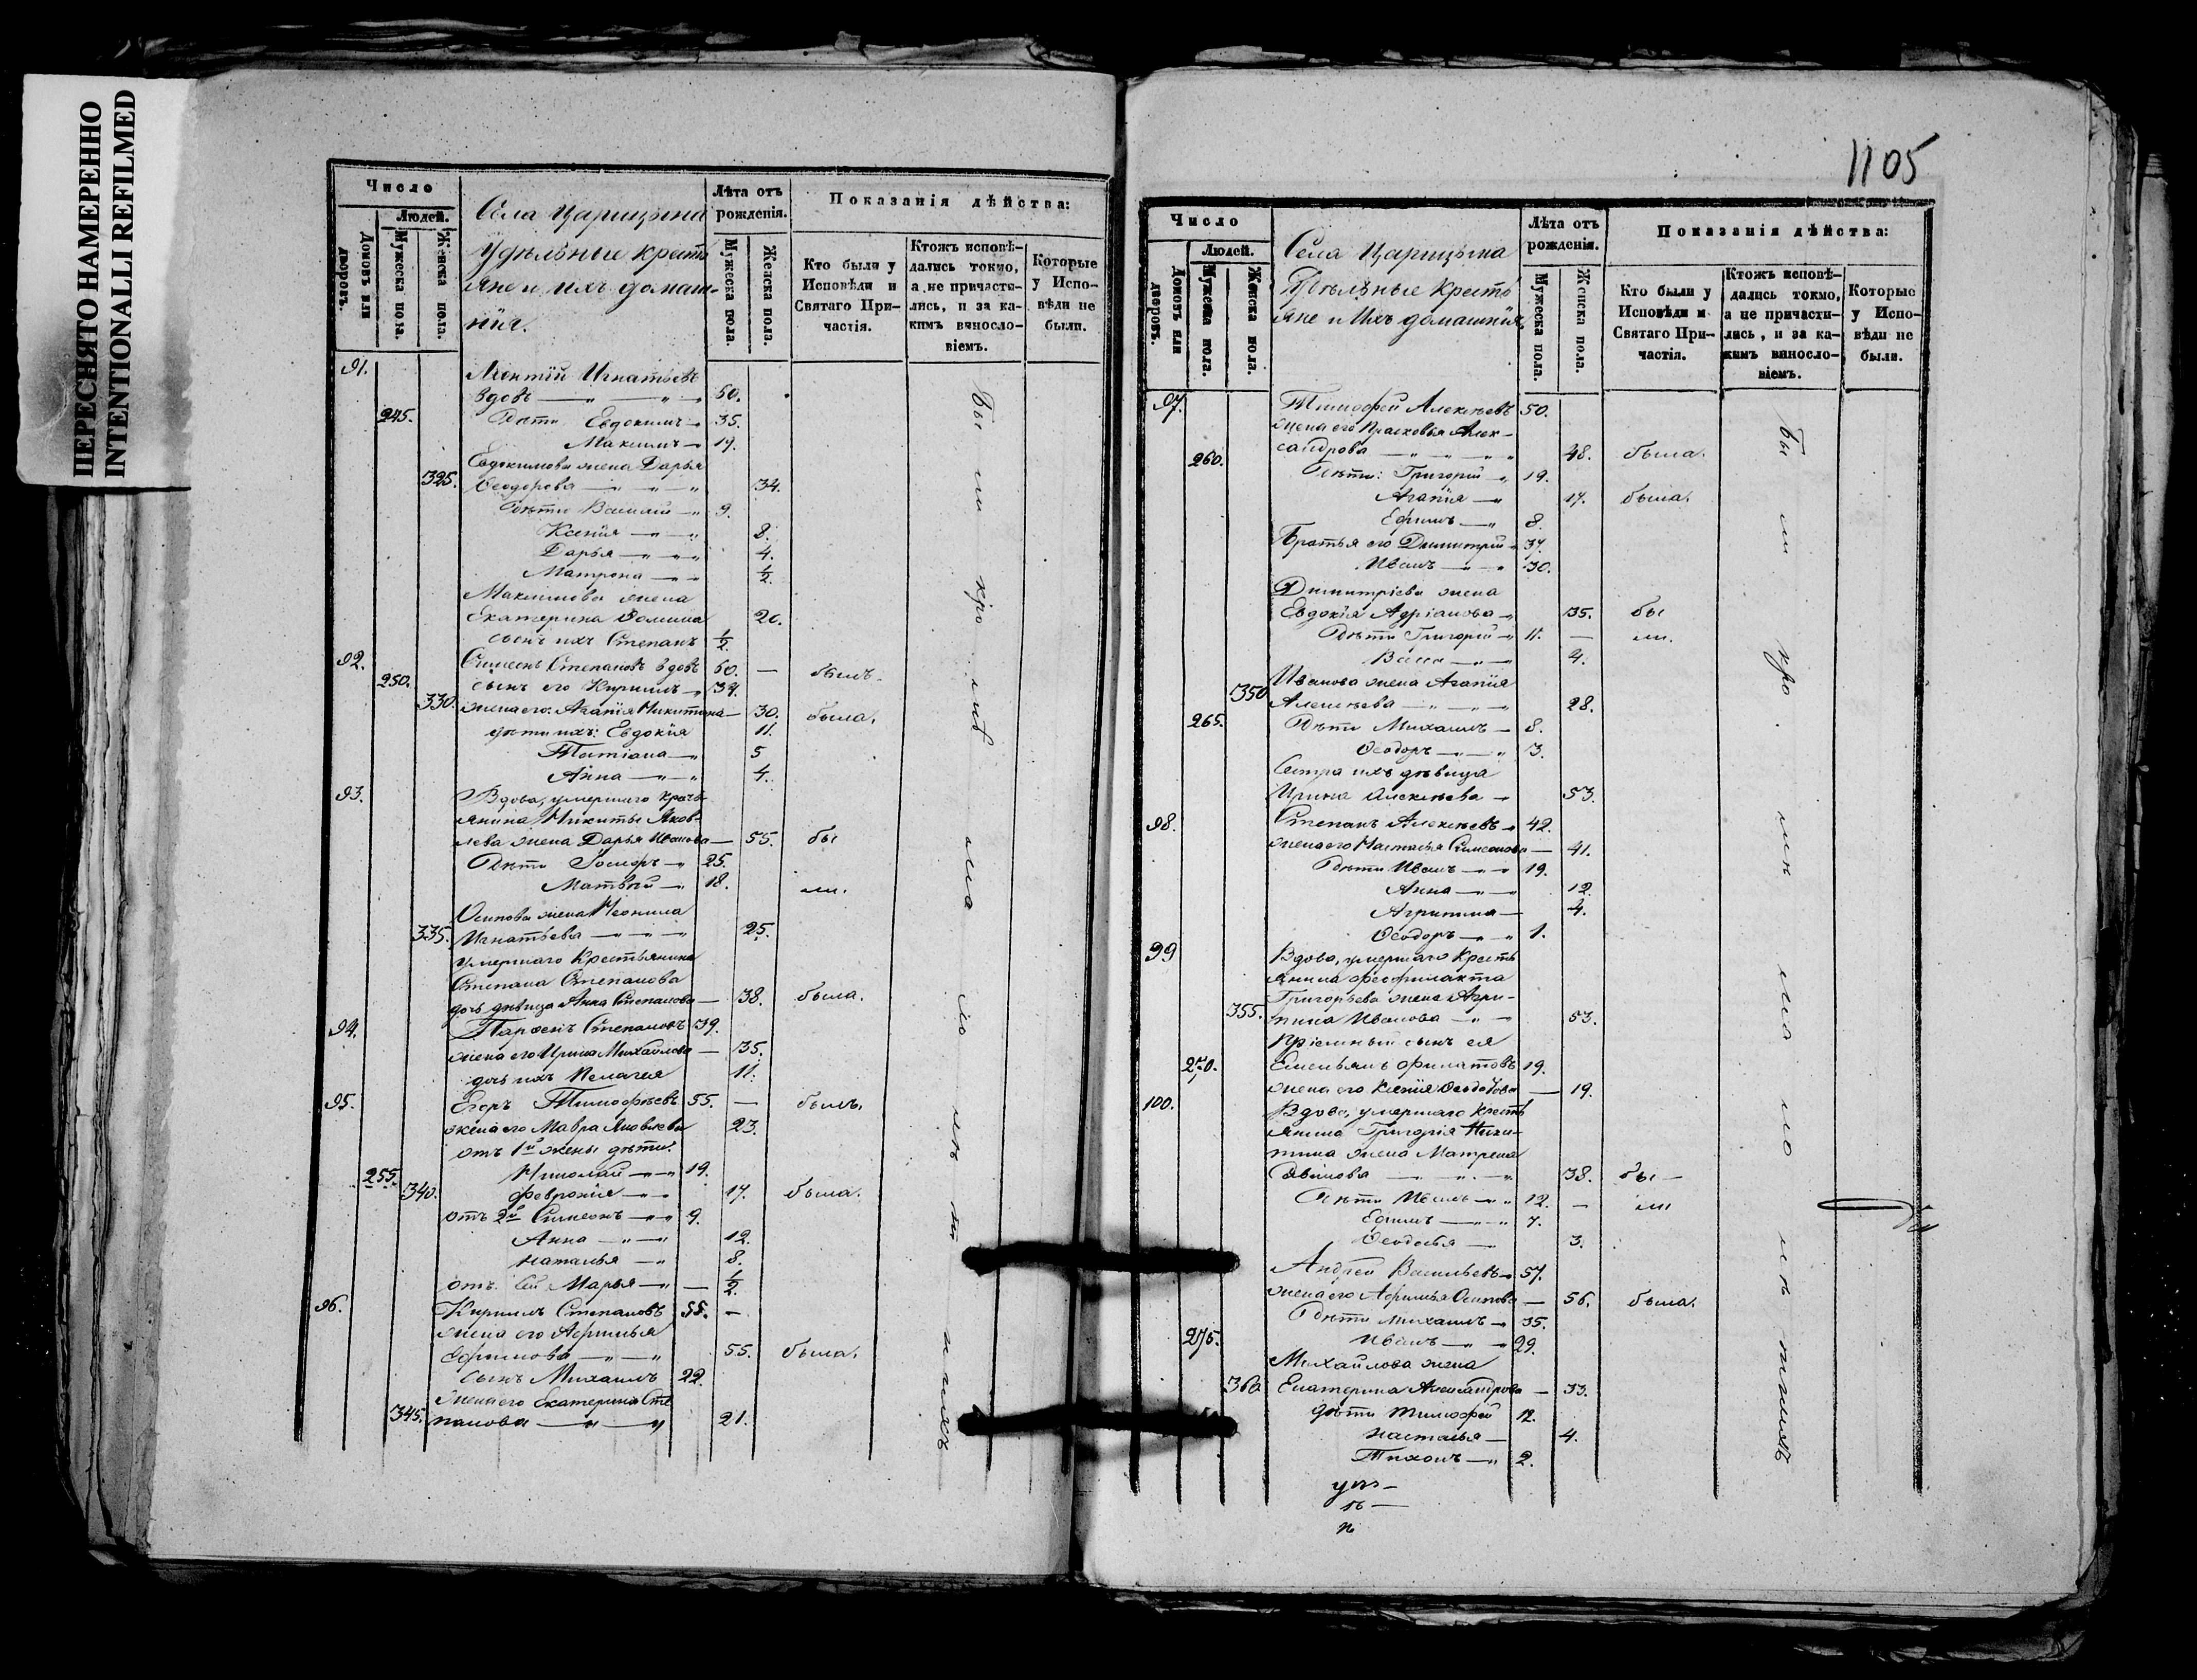 ПЕРЕСНЯТО НАМЕРЕННО
INTENTIONALLI REFILMED
Число
Людей.
Домовъ или дворовъ.
Мужеска пола.
Женска пола.
Села Царицына
Удѣльные кресть
яне и ихъ домаш-
нія.
Лѣта отъ рожденія.
Мужеска пола.
Женска пола.
Показанія дѣйства:
Кто были у Исповѣди и Святаго При- частія.
Ктожъ исповѣ- дались токмо, а не причасти- лись, и за ка- кимъ винosло- віемъ.
Которые у Испо- вѣди не были.
91.
Игнатьевъ
вдовъ 60.
245. Дѣти Евдокимъ 35.
Максимъ 19.
Евдокимова жена Дарья
325. Ѳеодорова 34.
Дѣти Василій 9.
Ксенія 8.
Дарья 4.
Матрона ½
Максимова жена
Екатерина Ѳомина 20.
сынъ ихъ Степанъ ½
92. Симеонъ Степановъ вдовъ 60. — былъ.
250. сынъ его Кириллъ 34.
330. жена его: Агапія Никитина — 30. была.
дѣти ихъ: Евдокія 11.
Татіана 5
Анна 4.
93. Вдова, умершаго кресть
янина Никиты Яков-
лева жена Дарья Иванова — 55. бы
Дѣти Іосифъ 25.
Матвѣй 18. ли.
Осипова жена Неонила
335. Игнатьева 25.
умершаго Крестьянина
Степана Степанова
дочь дѣвица Анна Степанова — 38. была.
94. Парѳенъ Степановъ 39.
жена его Ирина Михайлова — 35.
дочь ихъ Пелагея 11.
95. Егоръ Тимоѳѣевъ 55. — былъ.
жена его Мавра Яковлева 23.
отъ 1й жены дѣти:
255. Николай 19.
340. Февронія 17. была.
отъ 2й Симеонъ 9.
Анна 12.
Наталья 8.
отъ сей Марья — ½
96. Кириллъ Степановъ 55. —
жена его Афимья
Ефимова 55. была.
сынъ Михаилъ 22.
жена его Екатерина Сте
345. панова 21.
1105
Число
Людей.
Домовъ или дворовъ.
Мужеска пола.
Женска пола.
Села Царицына
Удѣльные Кресть
яне и Ихъ домашнія
Лѣта отъ рожденія.
Мужеска пола.
Женска пола.
Показанія дѣйства:
Кто были у Исповѣди и Святаго При- частія.
Ктожъ исповѣ- дались токмо, а не причасти- лись, и за ка- кимъ виносло- віемъ.
Которые у Испо- вѣди не были.
97. Тимофей Алексѣевъ 50.
жена его Прасковья Алек-
260. сандрова 48. была.
Дѣти: Григорій 19.
Агапія 17. была.
Ефимъ 8.
Братья его Димитрій 37.
Иванъ 30.
Димитріева жена
Евдокія Адріанова 35. бы
Дѣти Григорій 11. — ли.
Васса 4.
Иванова жена Агапія
350 Алексѣева 28.
265. Дѣти Михаилъ 8.
Ѳеодоръ 3.
Сестра ихъ дѣвица
Ирина Алексѣева 53.
98. Степанъ Алексѣевъ 42.
жена его Настасья Симеонова — 41.
Дѣти Иванъ 19.
Анна 12
Агрипина 4.
Ѳеодоръ 1.
99 Вдова, умершаго Кресть
янина Феофилакта
Григорьева жена Агри-
355. пина Иванова 53.
Пріемный сынъ ея
270. Емельянъ Филатовъ 19.
жена его Ксенія Ѳеодотова — 19.
100. Вдова, умершаго Кресть
янина Григорія Ники-
тина жена Матрена
38. бы —
Дѣти Иванъ 12. — ли
Ефимъ 7.
Ѳеодосья 3.
Андрей Васильевъ 57.
жена его Афимья Осипова — 56. была.
Дѣти Михаилъ 35.
275. Иванъ 29.
Михайлова жена
360 Екатерина Александрова — 33.
дѣти Тимофей 12.
Настасья 4.
Тихонъ 2.